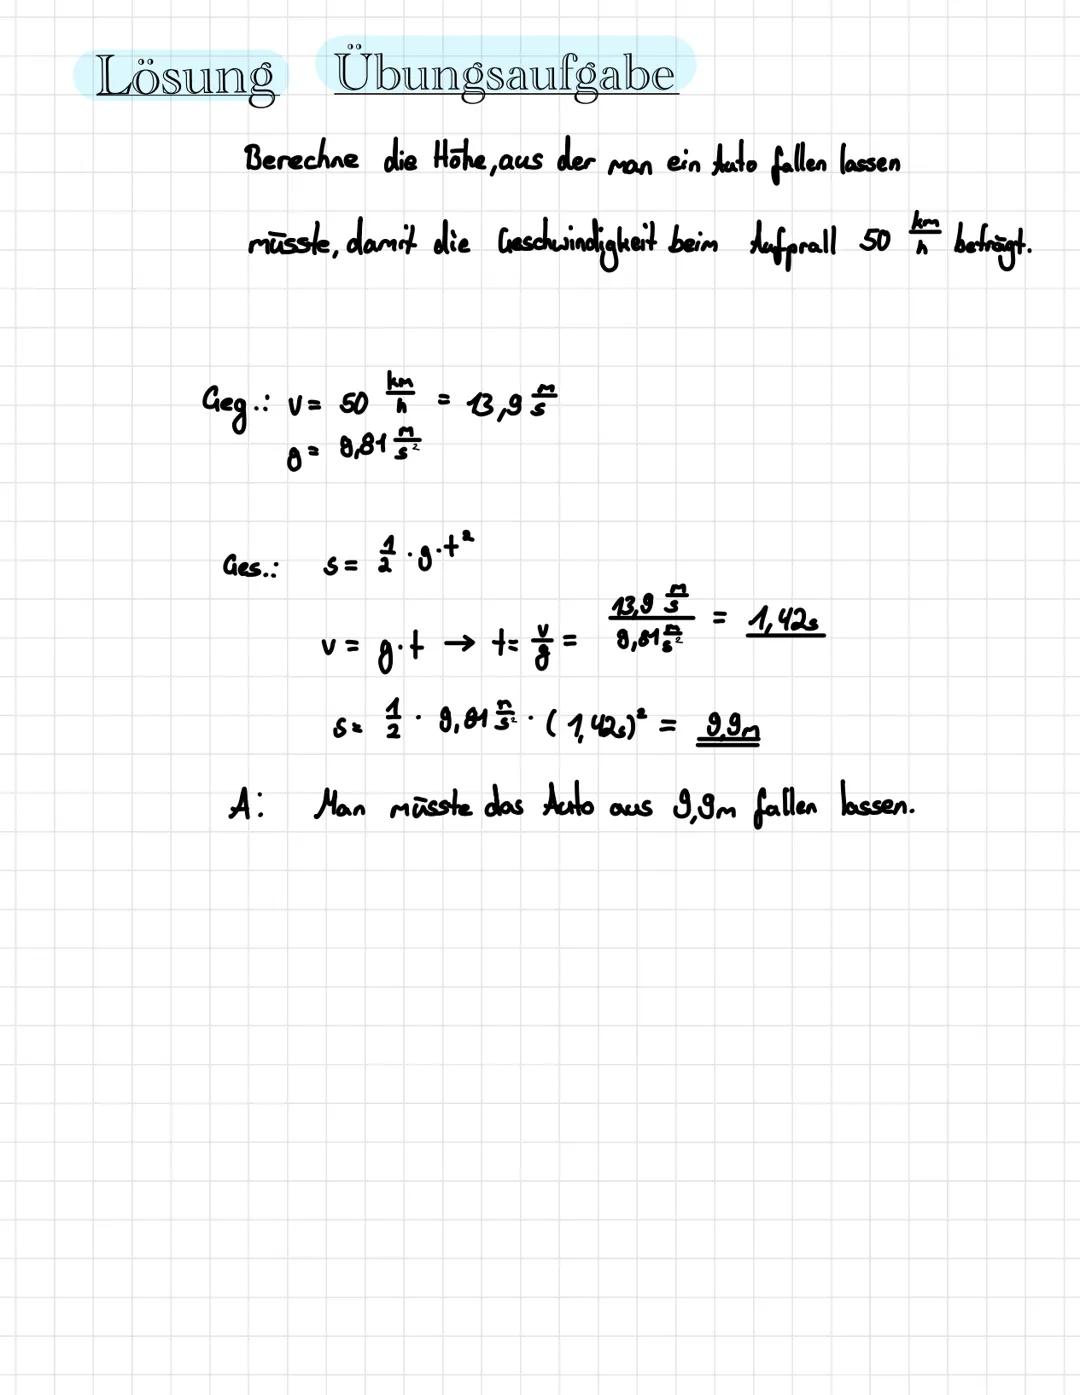 Lösung Übungsaufgabe
Berechne die Höhe, aus der man ein Auto fallen lassen
müsste, damit die Geschwindigkeit beim Aufprall 50 km/h beträgt.
Geg.: v = 50 km/h = 13,9 m/s
g = 9,81 m/s²
Ges.: s = 1/2 · g · t²
v = g · t → t = v/g = 13,9 m/s / 9,81 m/s² = 1,42s
s = 1/2 · 9,81 m/s² · (1,42s)² = 9,9m
A: Man müsste das Auto aus 9,9m fallen lassen.